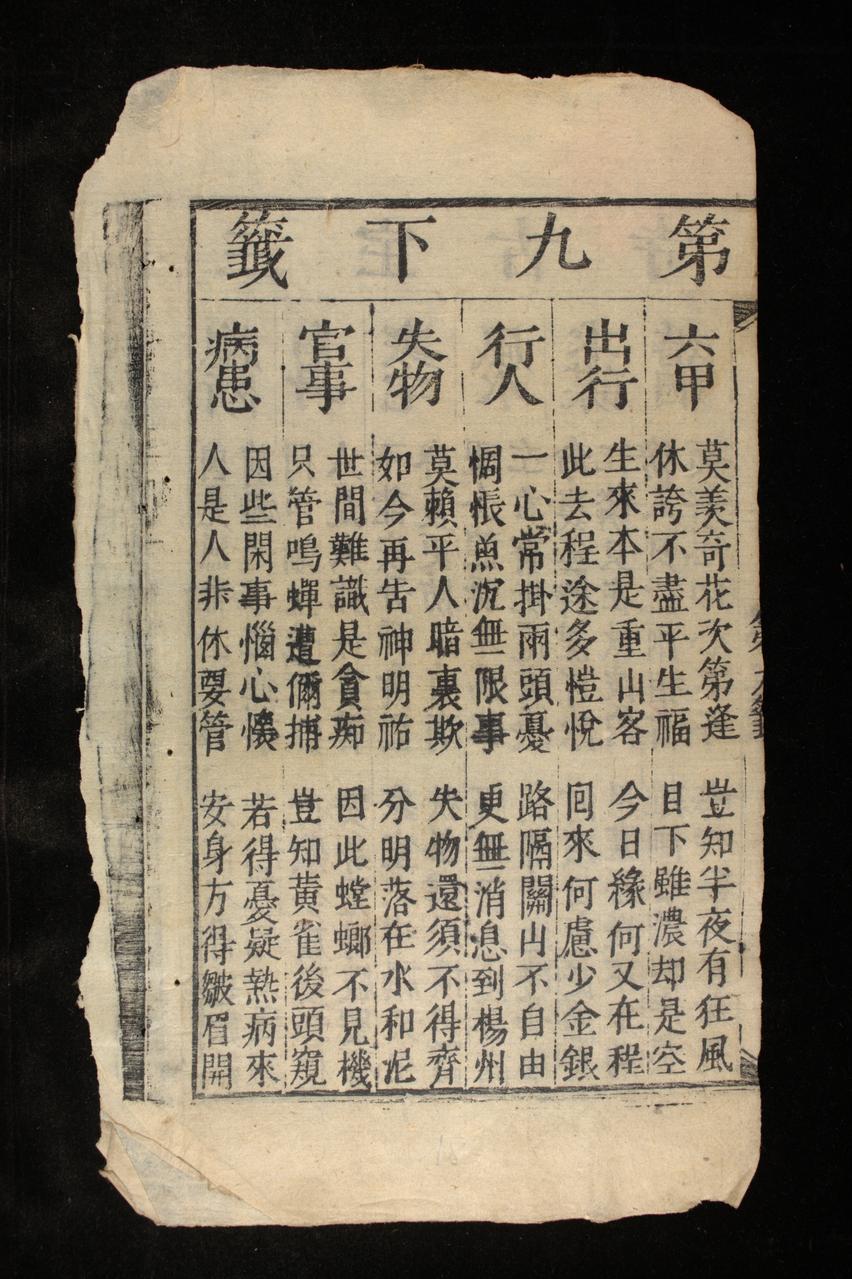 第九下籤
六甲
莫羡奇花次第逢 豈知半夜有狂風
休誇不盡平生福 目下雖濃却是空
出行
生來本是重山客 今日緣何又在程
此去程途多愷悅 回來何慮少金銀
行人
一心常掛兩頭憂 路隔關山不自由
惆悵魚沉無限事 更無消息到楊州
失物
莫賴平人暗裏欺 失物還須不得齊
如今再告神明祐 分明落在水和泥
官事
世間難識是貪痴 因此螳螂不見機
只管鳴蟬遭俻捕 豈知黃雀後頭窺
病患
因些閑事惱心懷 若得憂疑熱病來
人是人非休要管 安身方得皺眉開